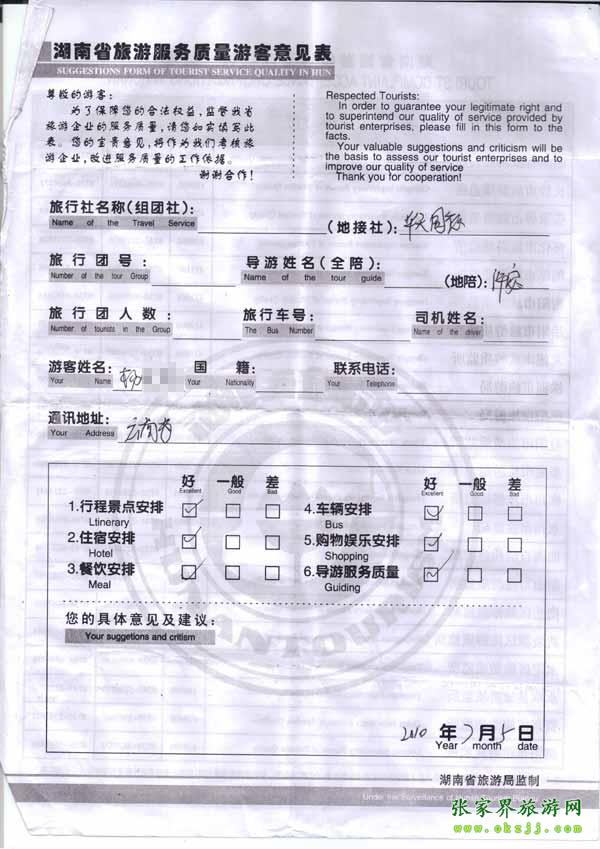 湖南省旅游服务质量游客意见表
SUGGESTIONS FORM OF TOURIST SERVICE QUALITY IN HUN
尊敬的游客:
为了保障您的合法权益,监督我省
旅游企业的服务质量,请您如实填写此
表。您的宝贵意见,将作为我们考核旅
游企业,改进服务质量的工作依据。
谢谢合作!
Respected Tourists:
In order to guarantee your legitimate right and
to superintend our quality of service provided by
tourist enterprises, please fill in this form to the
facts.
Your valuable suggestions and criticism will
be the basis to assess our tourist enterprises and to
improve our quality of service
Thank you for cooperation!
旅行社名称(组团社): (地接社):
Name of the Travel Service
旅行团号: 导游姓名(全陪): (地陪):
Number of the tour Group Name of the tour guide
旅行团人数: 旅行车号: 司机姓名:
Number of tourists in the Group The Bus Number Name of the driver
游客姓名: 国籍: 联系电话:
Your Name Your Nationality Your Telephone
通讯地址: 云南省
Your Address
好 一般 差 好 一般 差
Excellent Good Bad Excellent Good Bad
1.行程景点安排 4.车辆安排
Ltinerary Bus
2.住宿安排 5.购物娱乐安排
Hotel Shopping
3.餐饮安排 6.导游服务质量
Meal Guiding
您的具体意见及建议:
Your suggetions and critism
2010 年 7 月 5 日
Year month date
湖南省旅游局监制
Under the Surveillance of Hunan Tourism
张家界旅游网
www.okzjj.com